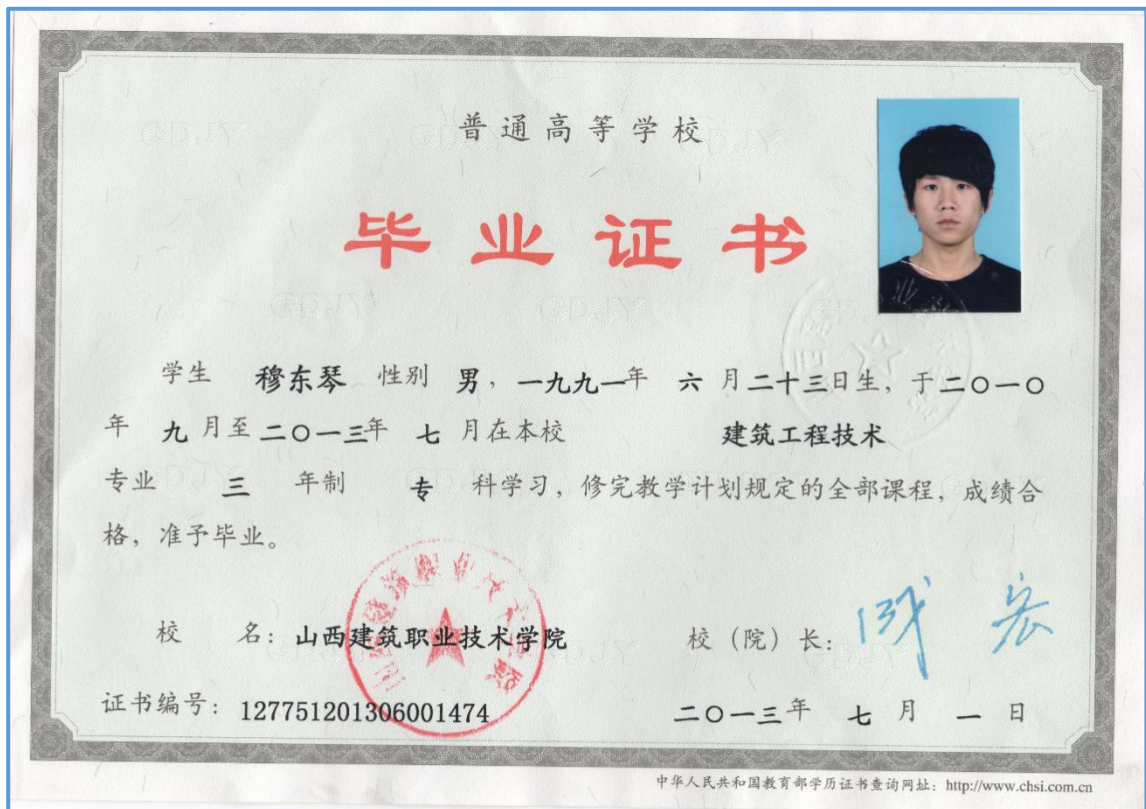 普通高等学校
毕业证书
学生 穆东琴 性别 男，一九九一年 六 月二十三日生，于二〇一〇
年 九 月至二〇一三年 七 月在本校 建筑工程技术
专业 三 年制 专 科学习，修完教学计划规定的全部课程，成绩合
格，准予毕业。
校 名：山西建筑职业技术学院
校（院）长：
证书编号：127751201306001474
二〇一三年 七 月 一 日
中华人民共和国教育部学历证书查询网址：http://www.chsi.com.cn